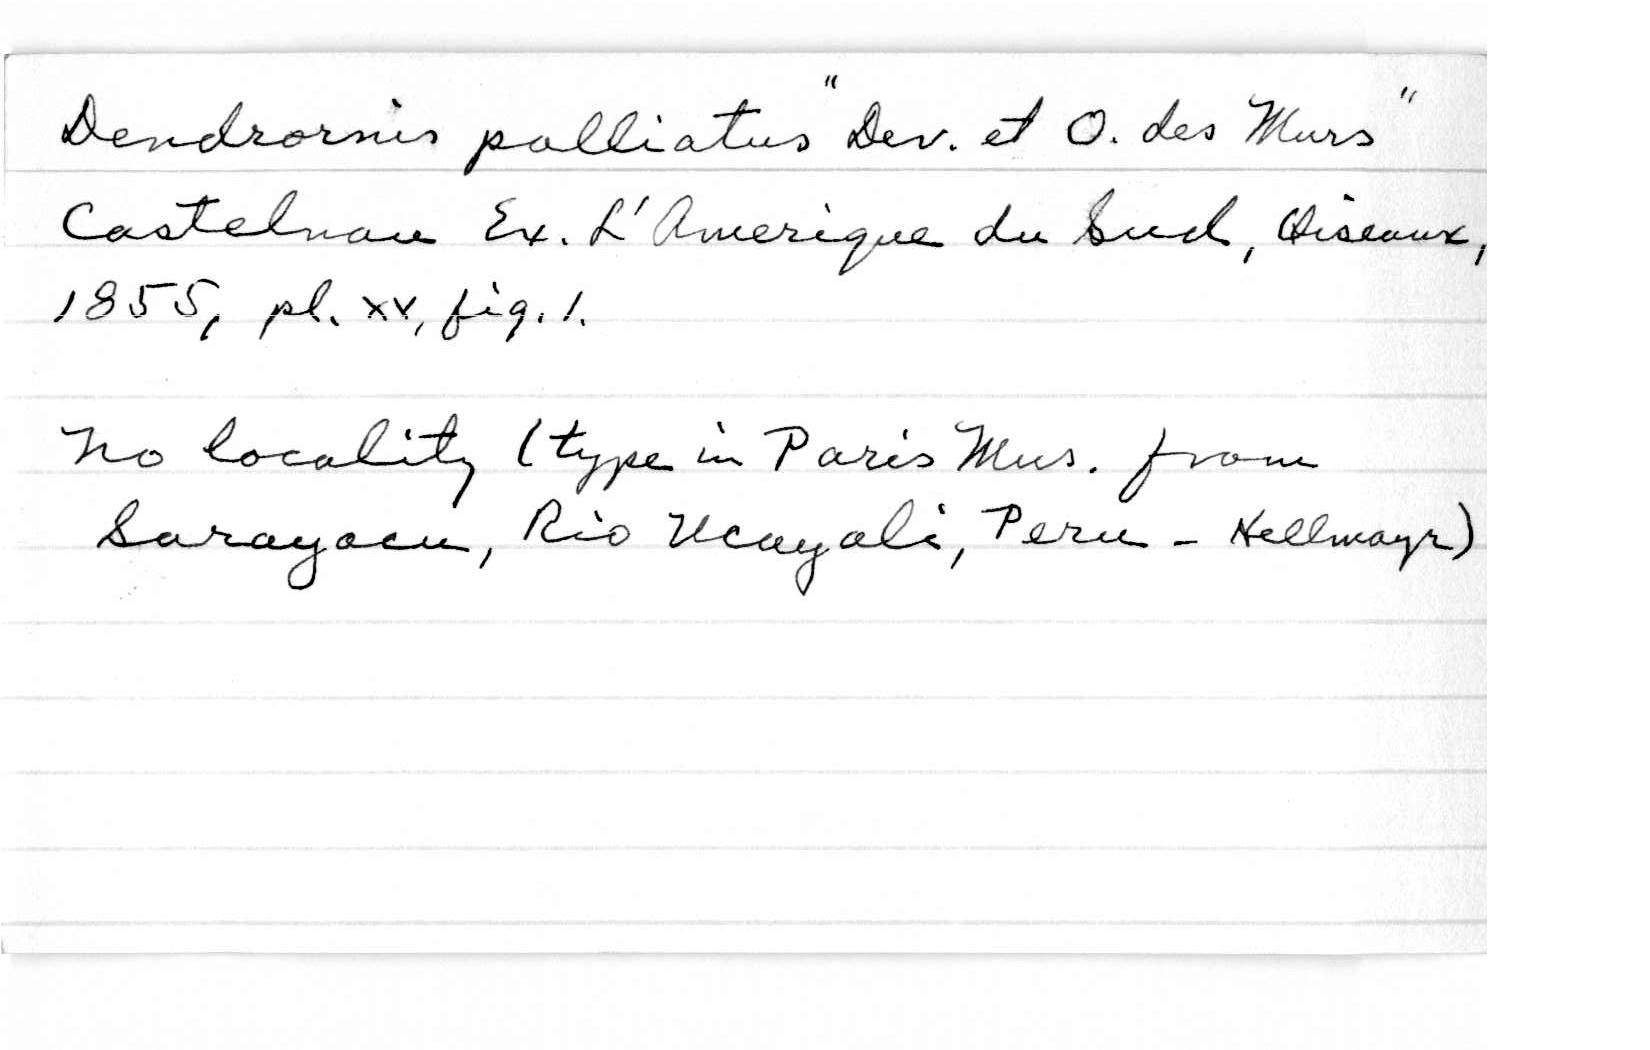 Dendrornis palliatus "Dev. et O. des Murs"
Castelnau Ex. L'Amerique du Sud, Oiseaux,
1855, pl. xv, fig. 1.
No locality (type in Paris Mus. from
Sarayacu, Rio Ucayali, Peru - Hellmayr)